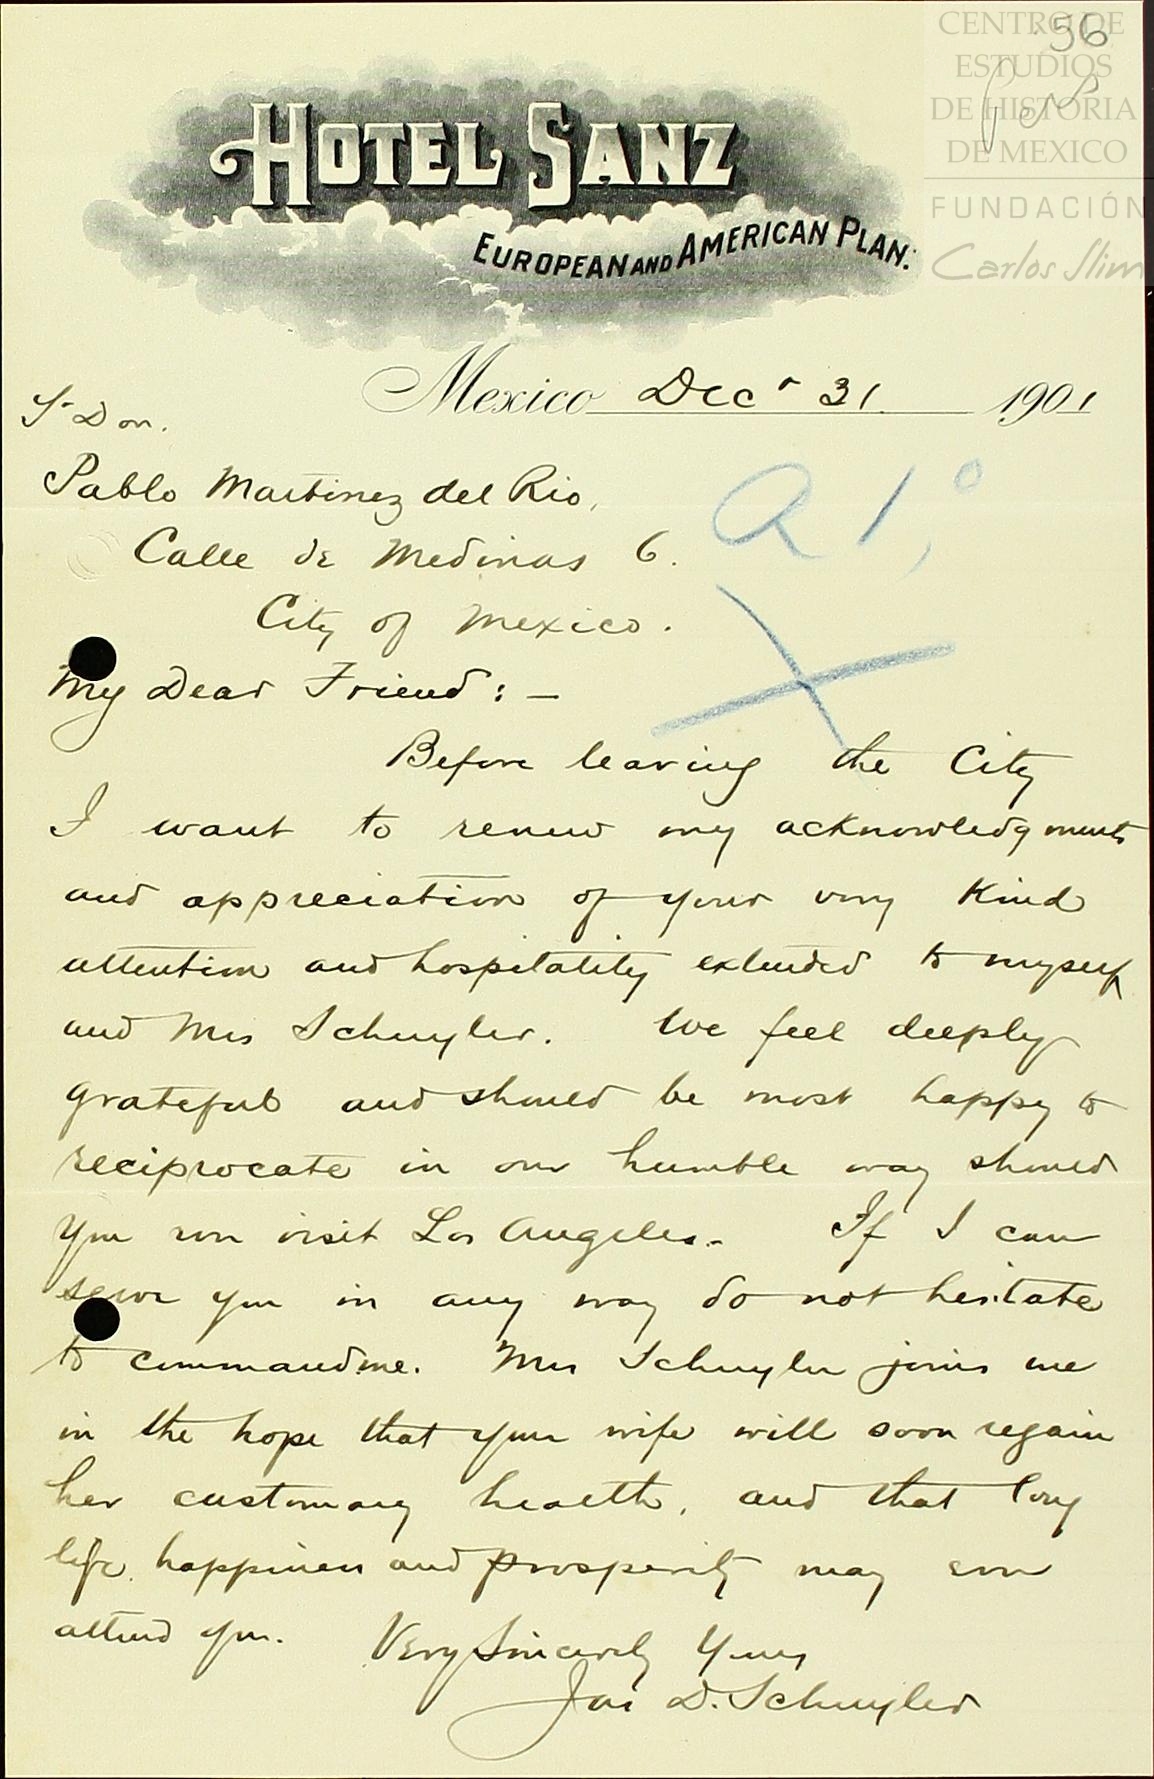 CENTRO DE
ESTUDIOS
DE HISTORIA
DE MEXICO
FUNDACIÓN
Carlos Slim
56
HOTEL SANZ
EUROPEAN AND AMERICAN PLAN.
Mexico Decr 31 1901
Sr Don.
Pablo Martinez del Rio,
Calle de Medinas 6.
City of Mexico.
a 1º
My Dear Friend: —
Before leaving the City
I want to renew my acknowledgments
and appreciation of your very kind
attention and hospitality extended to myself
and Mrs Schuyler. We feel deeply
grateful and should be most happy to
reciprocate in our humble way should
you ever visit Los Angeles. If I can
serve you in any way do not hesitate
to command me. Mrs Schuyler joins me
in the hope that your wife will soon regain
her customary health, and that long
life, happiness and prosperity may ever
attend you. Very Sincerely Yours
Jas D. Schuyler